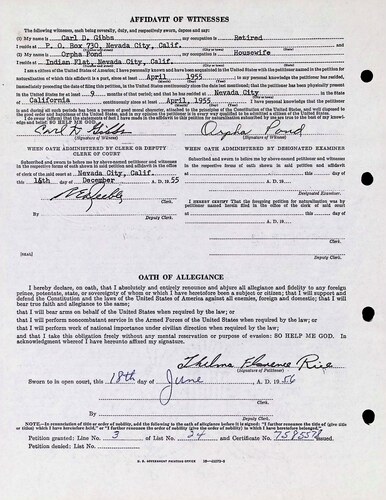 AFFIDAVIT OF WITNESSES
The following witnesses, each being severally, duly, and respectively sworn, depose and say:
(1) My name is Carl D. Gibbs my occupation is Retired
I reside at P. O. Box 730, Nevada City, Calif. and
(2) My name is Orpha Pond my occupation is Housewife
I reside at Indian Flat, Nevada City, Calif.
I am a citizen of the United States of America; I have personally known and have been acquainted in the United States with the petitioner named in the petition for
naturalization of which this affidavit is a part, since at least April 1955 to my personal knowledge the petitioner has resided,
immediately preceding the date of filing this petition, in the United States continuously since the date last mentioned;
United States for at least 9 months of that period; and that he has resided at Nevada City in the State
of California continuously since at least April, 1955
Carl D Gibbs Orpha Pond
(Signature of Witness) (Signature of Witness)
WHEN OATH ADMINISTERED BY CLERK OR DEPUTY CLERK OF COURT
Subscribed and sworn to before me by above-named petitioner and witnesses
in the respective forms of oath shown in said petition and affidavit in the office
of clerk of the said court at Nevada City, Calif.
this 16th day of December A. D. 1955
Clerk.
By
Deputy Clerk.
[SEAL]
WHEN OATH ADMINISTERED BY DESIGNATED EXAMINER
Subscribed and sworn to before me by above-named petitioner and witnesses
in the respective forms of oath shown in said petition and affidavit
at
this day of A. D. 19
Designated Examiner.
I HEREBY CERTIFY That the foregoing petition for naturalization was by
petitioner named herein filed in the office of the clerk of said court
at
this day of A. D. 19
Clerk.
By
Deputy Clerk.
OATH OF ALLEGIANCE
I hereby declare, on oath, that I absolutely and entirely renounce and abjure all allegiance and fidelity to any foreign
prince, potentate, state, or sovereignty of whom or which I have heretofore been a subject or citizen; that I will support and
defend the Constitution and the laws of the United States of America against all enemies, foreign and domestic; that I will
bear true faith and allegiance to the same;
that I will bear arms on behalf of the United States when required by the law; or
that I will perform noncombatant service in the Armed Forces of the United States when required by the law; or
that I will perform work of national importance under civilian direction when required by the law;
and that I take this obligation freely without any mental reservation or purpose of evasion: SO HELP ME GOD. In
acknowledgment whereof I have hereunto affixed my signature.
Thelma Florence Rice
(Signature of Petitioner)
Sworn to in open court, this 18th day of June A. D. 1956
Clerk.
By
Deputy Clerk.
NOTE.—In renunciation of title or order of nobility, add the following to the oath of allegiance before it is signed: "I further renounce the title of (give title
or titles) which I have heretofore held," or "I further renounce the order of nobility (give the order of nobility) to which I have heretofore belonged."
Petition granted: Line No. 3 of List No. 24 and Certificate No. issued.
Petition denied: List No.
U. S. GOVERNMENT PRINTING OFFICE